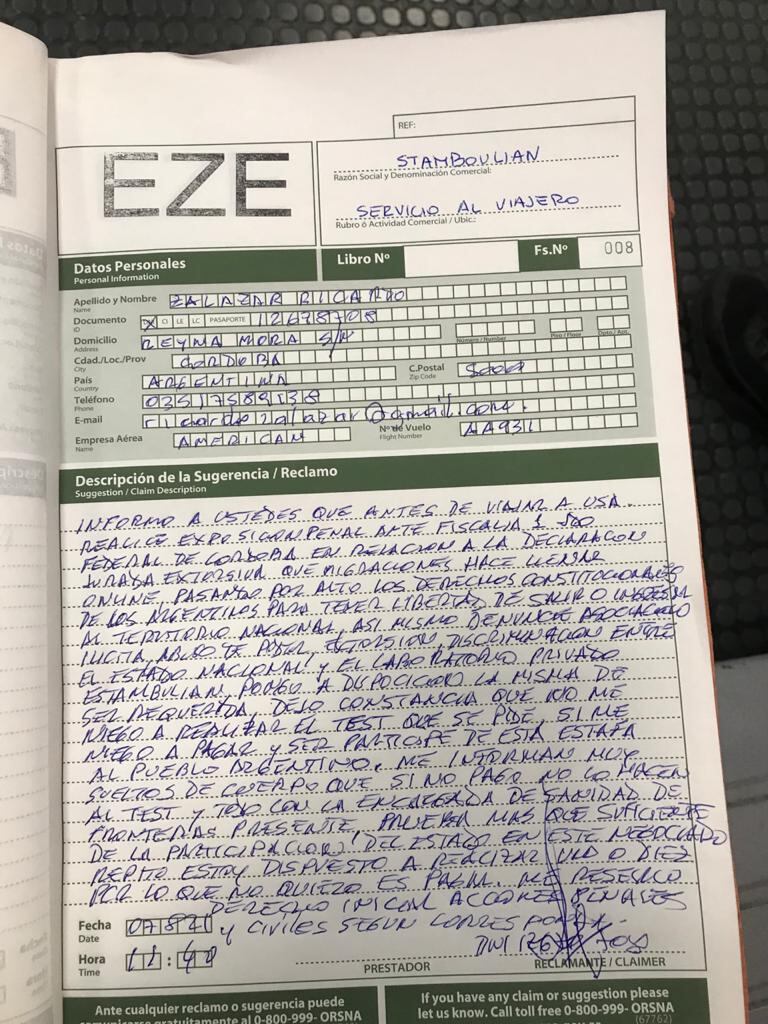 REF:
EZE
STAMBOULIAN
Razón Social y Denominación Comercial:
SERVICIO AL VIAJERO
Rubro ó Actividad Comercial / Ubic.:
Datos Personales
Personal Information
Libro Nº
Fs.Nº 008
Apellido y Nombre ZALAZAR RICARDO
Name
Documento X CI LE LC PASAPORTE 12678708
ID
Domicilio REYNA MORA S/N
Address Número / Number Piso / Floor Dpto./ Apt.
Cdad./Loc./Prov CORDOBA
City
C.Postal 5000
Zip Code
País ARGENTINA
Country
Teléfono
Phone
E-mail ricardo zalazar@gmail.com.
Empresa Aérea AMERICAN
Name
Nº de Vuelo AA931
Flight Number
Descripción de la Sugerencia / Reclamo
Suggestion / Claim Description
INFORMO A USTEDES QUE ANTES DE VIAJAR A USA.
REALICE EXPOSICION PENAL ANTE FISCALIA 1
FEDERAL DE CORDOBA EN RELACION A LA DECLARACION
JURADA EXTORSIVA QUE MIGRACIONES HACE LLENAR
ONLINE PASANDO POR ALTO LOS DERECHOS CONSTITUCIONALES
DE LOS ARGENTINOS PARA TENER LIBERTAD DE SALIR O INGRESAR
AL TERRITORIO NACIONAL, ASI MISMO DENUNCIE ASOCIACION
ILICITA, ABUSO DE PODER, EXTORSION, DISCRIMINACION ENTRE
EL ESTADO NACIONAL Y EL LABORATORIO PRIVADO
ESTAMBULIAN, PONGO A DISPOCICION LA MISMA DE
SER REQUERIDA, DEJO CONSTANCIA QUE NO ME
NIEGO A REALIZAR EL TEST QUE SE PIDE, SI ME
NIEGO A PAGAR Y SER PARTICIPE DE ESTA ESTAFA
AL PUEBLO ARGENTINO. ME INFORMAN MUY
SUELTOS DE CUERPO QUE SI NO PAGO NO LO HACEN
AL TEST Y TODO CON LA ENCARGADA DE SANIDAD DE
FRONTERAS PRESENTE, PRUEBA MAS QUE SUFICIENTE
DE LA PARTICIPACION DEL ESTADO EN ESTE NEGOCIADO
REPITO ESTOY DISPUESTO A REALIZAR UNO O DIEZ
POR LO QUE NO QUIERO ES PAGAR. ME RESERVO
DERECHO INICIAR ACCIONES PENALES
Y CIVILES SEGUN CORRESPONDA.
Fecha 07821
Date
Hora 11:40
Time
DNI 12678708
PRESTADOR
RECLAMANTE / CLAIMER
Ante cualquier reclamo o sugerencia puede
comunicarse gratuitamente al 0-800-999- ORSNA
If you have any claim or suggestion please
let us know. Call toll free 0-800-999- ORSNA
(67762)